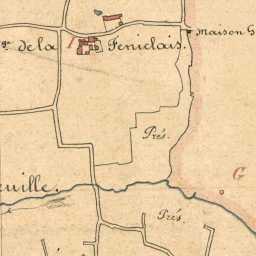 Maison
de la Feniclais.
Prés.
G
euille.
Prés.